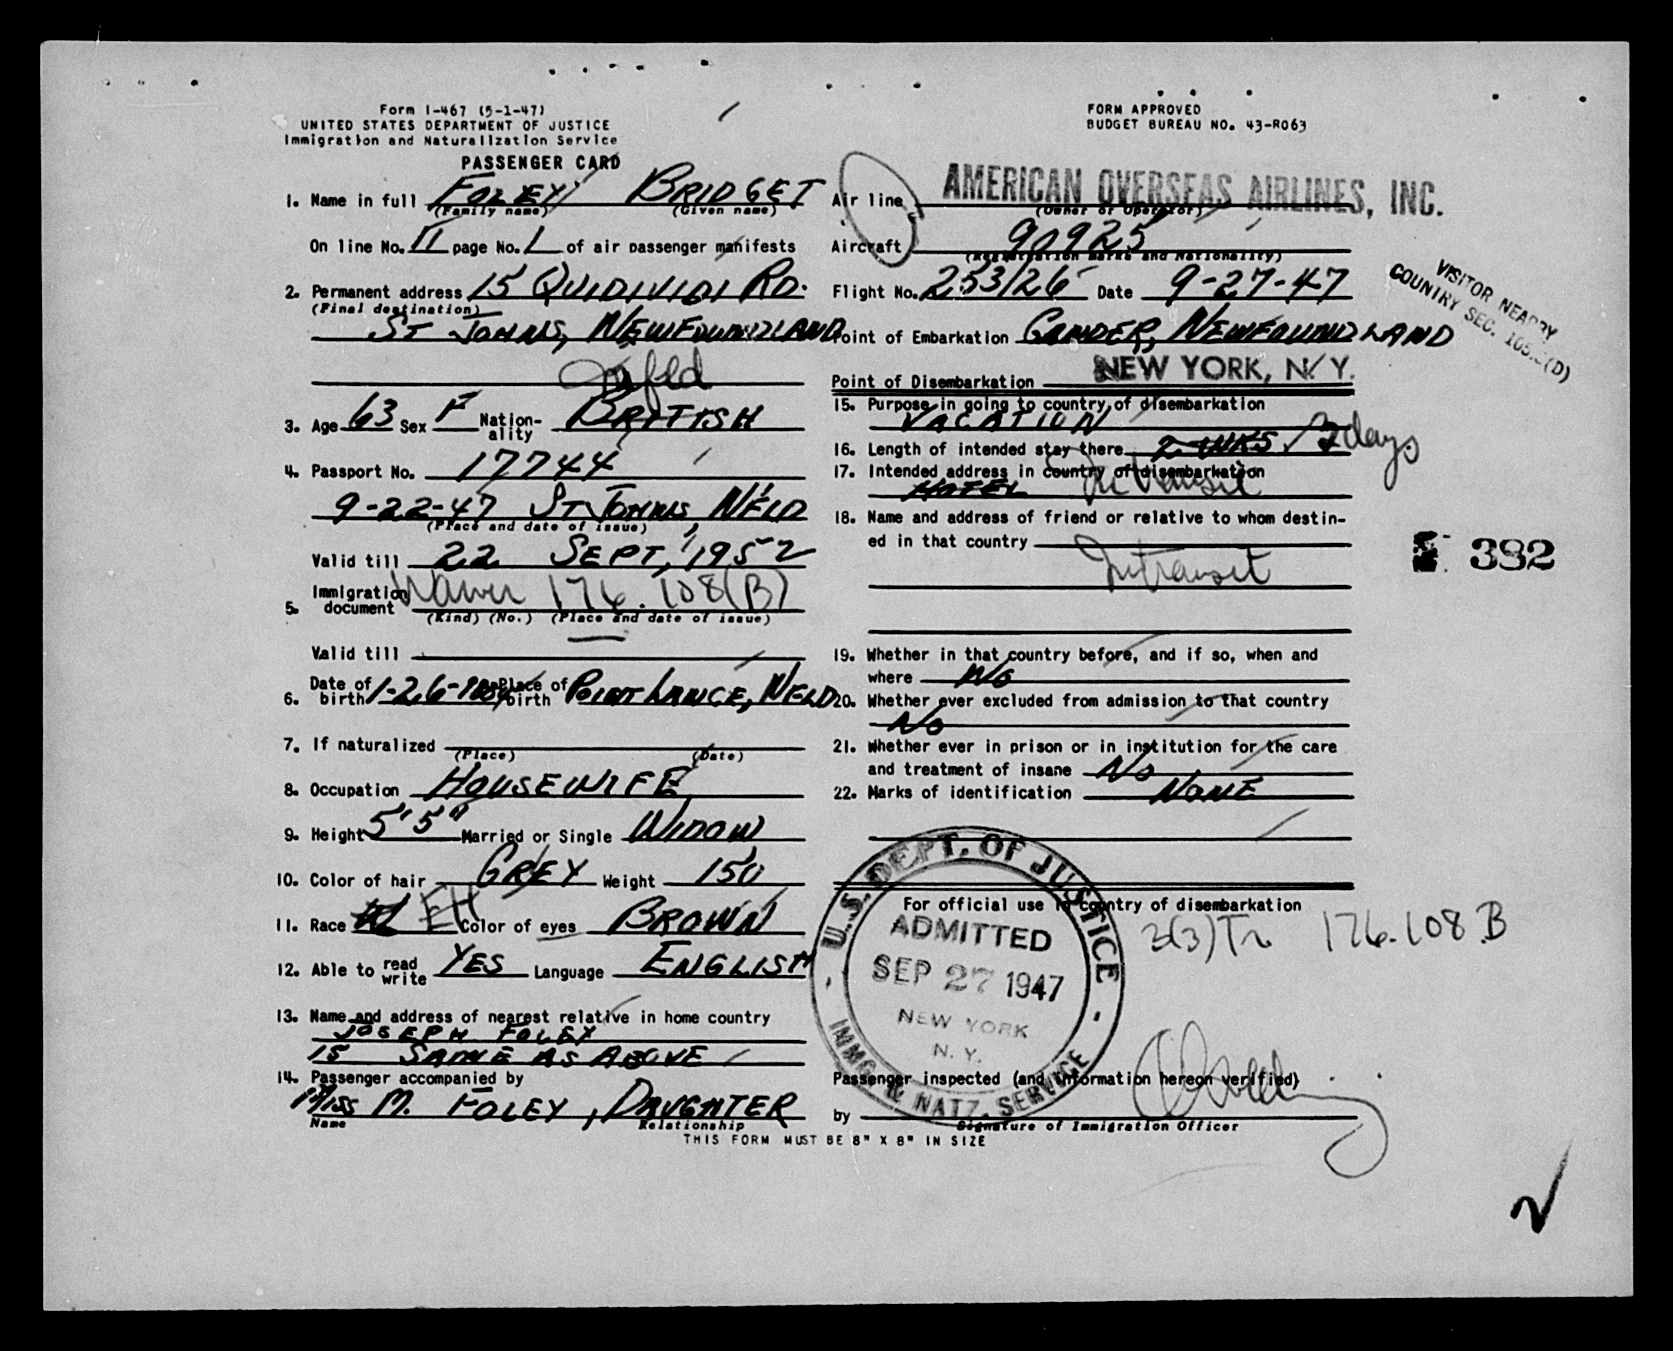 Form I-467 (5-1-47)
UNITED STATES DEPARTMENT OF JUSTICE
Immigration and Naturalization Service
PASSENGER CARD
FORM APPROVED
BUDGET BUREAU NO. 43-R063
1. Name in full FOLEY BRIDGET
(Family name) (Given name)
On line No. 11 page No. 1 of air passenger manifests
2. Permanent address 15 QUIDIVIDI RD.
(Final destination)
ST JOHNS, NEWFOUNDLAND
Nfld
3. Age 63 Sex F Nation-ality BRITISH
4. Passport No. 17744
9-22-47 ST JOHNS, NFLD
(Place and date of issue)
Valid till 22 SEPT, 1952
5. Immigration document Waiver 176.108(B)
(Kind) (No.) (Place and date of issue)
Valid till
6. Date of birth 1-26-1884 Place of birth POINT LANCE, NFLD
7. If naturalized
(Place) (Date)
8. Occupation HOUSEWIFE
9. Height 5'5" Married or Single WIDOW
10. Color of hair GREY Weight 150
11. Race EH Color of eyes BROWN
12. Able to read write YES Language ENGLISH
13. Name and address of nearest relative in home country
JOSEPH FOLEY
15 SAME AS ABOVE
14. Passenger accompanied by
MISS M. FOLEY, DAUGHTER
Name Relationship
THIS FORM MUST BE 8" X 8" IN SIZE
Air line AMERICAN OVERSEAS AIRLINES, INC.
(Owner or Operator)
Aircraft 90925
(Registration marks and Nationality)
Flight No. 253/26 Date 9-27-47
VISITOR NEARBY
COUNTRY SEC. 105. (D)
Point of Embarkation GANDER, NEWFOUNDLAND
Point of Disembarkation NEW YORK, N.Y.
15. Purpose in going to country of disembarkation
VACATION
16. Length of intended stay there 2 WKS 3 days
17. Intended address in country of disembarkation
HOTEL In transit
18. Name and address of friend or relative to whom destin-
ed in that country
Intransit
382
19. Whether in that country before, and if so, when and
where NO
20. Whether ever excluded from admission to that country
No
21. Whether ever in prison or in institution for the care
and treatment of insane No
22. Marks of identification NONE
For official use in country of disembarkation
3(3)Tr 176.108.B
U.S. DEPT. OF JUSTICE
ADMITTED
SEP 27 1947
NEW YORK
N. Y.
IMMG. & NATZ. SERVICE
Passenger inspected (and information hereon verified)
by
Signature of Immigration Officer